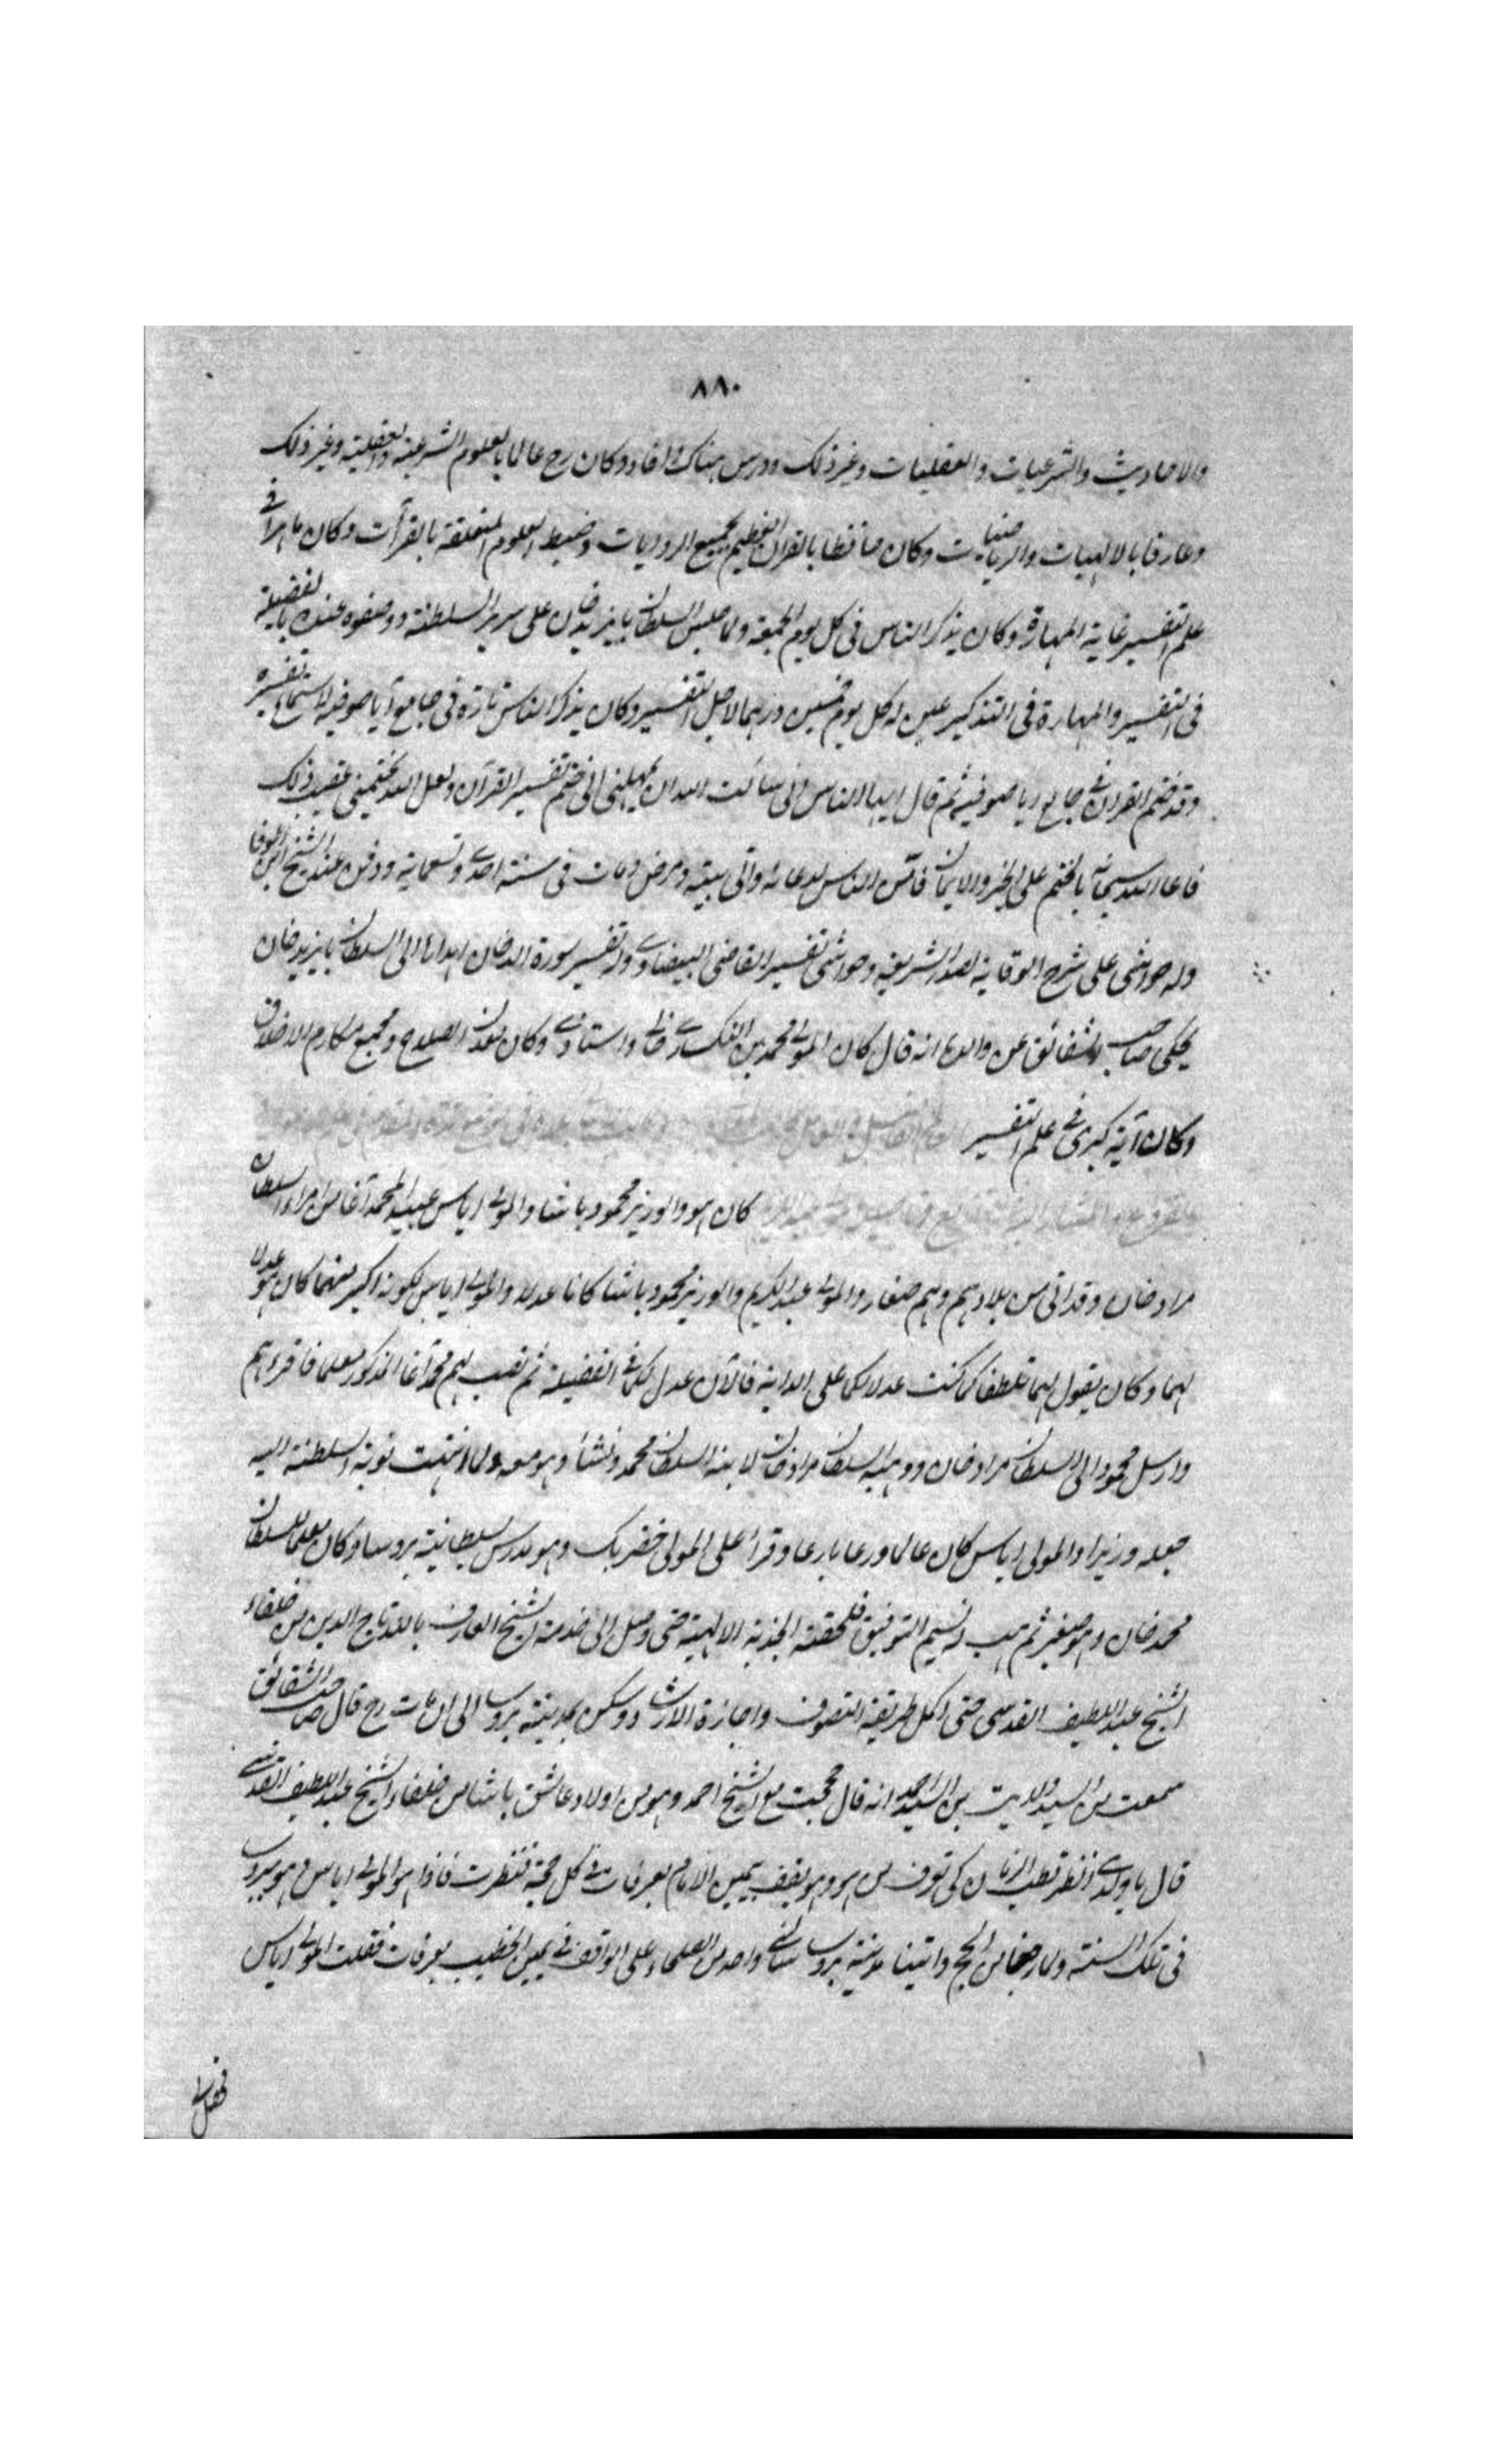 ٨٨٠
والاحاديث والشرعيات والعقليات وغير ذلك ودرس هناك وافاد وكان رح عالما بالعلوم الشرعية والعقلية وغير ذلك
وعارفا بالالهيات والرياضيات وكان حافظا بالقرآن العظيم بجميع الروايات وضبط العلوم المتعلقة بالقرآت وكان ماهرا في
علم التفسير غاية المهارة وكان يذكر الناس في كل يوم الجمعة ولما جلس السلطان بايزيد خان على سرير السلطنة ووصفوه عنده بالفضيلة
في التفسير والمهارة في التذكير عين له كل يوم خمسين درهما لاجل التفسير وكان يذكر الناس تارة في جامع آيا صوفيه لاستماع تفسيره
وقد ختم القرآن في جامع ايا صوفيه ثم قال ايها الناس اني سألت الله ان يمهلني الى ختم تفسير القرآن ولعل الله يختمني عقيب ذلك
فدعا الله سبحانه بالختم على الخير والايمان فامّن الناس لدعائه واتى بيته ومرض ومات في سنة احدى وتسعماية ودفن عند الشيخ ابن الوفا
وله حواشي على شرح الوقاية لصدر الشريعة وحواشي تفسير القاضي البيضاوي وله تفسير سورة الدخان اهداها الى السلطان بايزيد خان
يحكي صاحب الشقائق عن والده انه قال كان المولى محمد بن النكساري خالي واستاذي وكان معدن الصلاح ومجمع مكارم الاخلاق
وكان آية كبرى في علم التفسير
كان هو والوزير محمود باشا والمولى اياس عبيد المحمد آغا من امراء السلطان
مراد خان وقد اتى من بلادهم وهم صغار والمولى عبد الكريم والوزير محمود باشا كانا عدلا والمولى اياس لكونه اكبر منهما كان هو عدلا
لهما وكان يقول لهما تلطفا كما كنت عدلا لكما على الدابة فالآن عدل لكما في الفضيلة ثم نصب لهم محمد آغا المذكور معلما فاقرءهم
وارسل محمود الى السلطان مراد خان ووهبه السلطان مراد خان لابنه السلطان محمد ونشأ وهو معه ولما انتهت نوبة السلطنة اليه
جعله وزيرا والمولى اياس كان عالما ورعا بارعا وقرأ على المولى خضر بك وهو مدرس بسلطانية بروسا وكان معلما للسلطان
محمد خان وهو صغير ثم هب له نسيم التوفيق فلحقته الجذبة الالهية حتى وصل الى خدمة الشيخ العارف بالله تاج الدين من خلفاء
الشيخ عبد اللطيف القدسي حتى اكمل طريقة التصوف واجازة الارشاد وسكن بمدينة بروسا الى ان مات رح قال صاحب الشقائق
سمعت من السيد ولايت بن السيد احمد انه قال حججت مع الشيخ احمد وهو من اولاد عاشق باشا من خلفاء الشيخ عبد اللطيف القدسي
قال يا ولدي انظر قطب الزمان كي تعرف من هو وهو يقف بيمين الامام بعرفات في كل حجة فنظرت فاذا هو المولى اياس وهو ببروسا
في تلك السنة ولما رجعنا من الحج واتينا مدينة بروسا سألني واحد من العلماء على الواقف في يمين الخطيب بعرفات فقلت المولى اياس